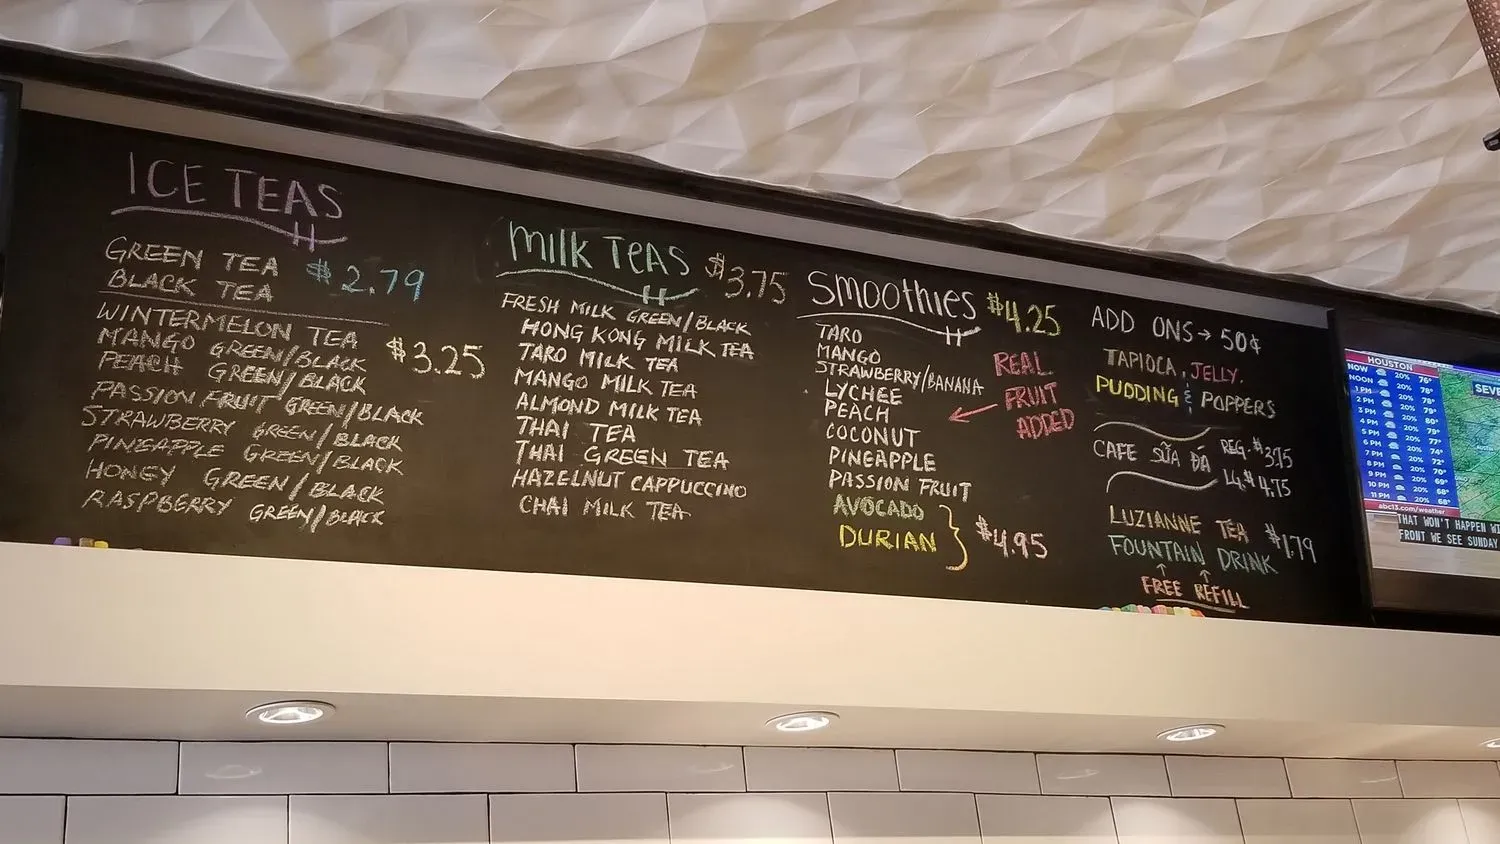 ICE TEAS
GREEN TEA
BLACK TEA
$2.79
WINTERMELON TEA
MANGO GREEN/BLACK
PEACH GREEN/BLACK
$3.25
PASSION FRUIT GREEN/BLACK
STRAWBERRY GREEN/BLACK
PINEAPPLE GREEN/BLACK
HONEY GREEN/BLACK
RASPBERRY GREEN/BLACK
MILK TEAS $3.75
FRESH MILK GREEN/BLACK
HONG KONG MILK TEA
TARO MILK TEA
MANGO MILK TEA
ALMOND MILK TEA
THAI TEA
THAI GREEN TEA
HAZELNUT CAPPUCCINO
CHAI MILK TEA
SMOOTHIES $4.25
TARO
MANGO
STRAWBERRY/BANANA
LYCHEE
PEACH
COCONUT
PINEAPPLE
PASSION FRUIT
AVOCADO
DURIAN
$4.95
REAL
FRUIT
ADDED
ADD ONS → 50¢
TAPIOCA, JELLY.
PUDDING & POPPERS
CAFE SỮA ĐÁ REG. $3.75
LG. $4.75
LUZIANNE TEA $1.79
FOUNTAIN DRINK
FREE REFILL
HOUSTON
NOW 20% 76°
NOON 20% 78°
1 PM 20% 79°
2 PM 20% 80°
3 PM 20% 79°
4 PM 20% 79°
5 PM 20% 77°
6 PM 20% 74°
7 PM 20% 72°
8 PM 20% 70°
9 PM 20% 69°
10 PM 20% 68°
11 PM 20% 68°
abc13.com/weather
SEVE
THAT WON'T HAPPEN WI
FRONT WE SEE SUNDAY